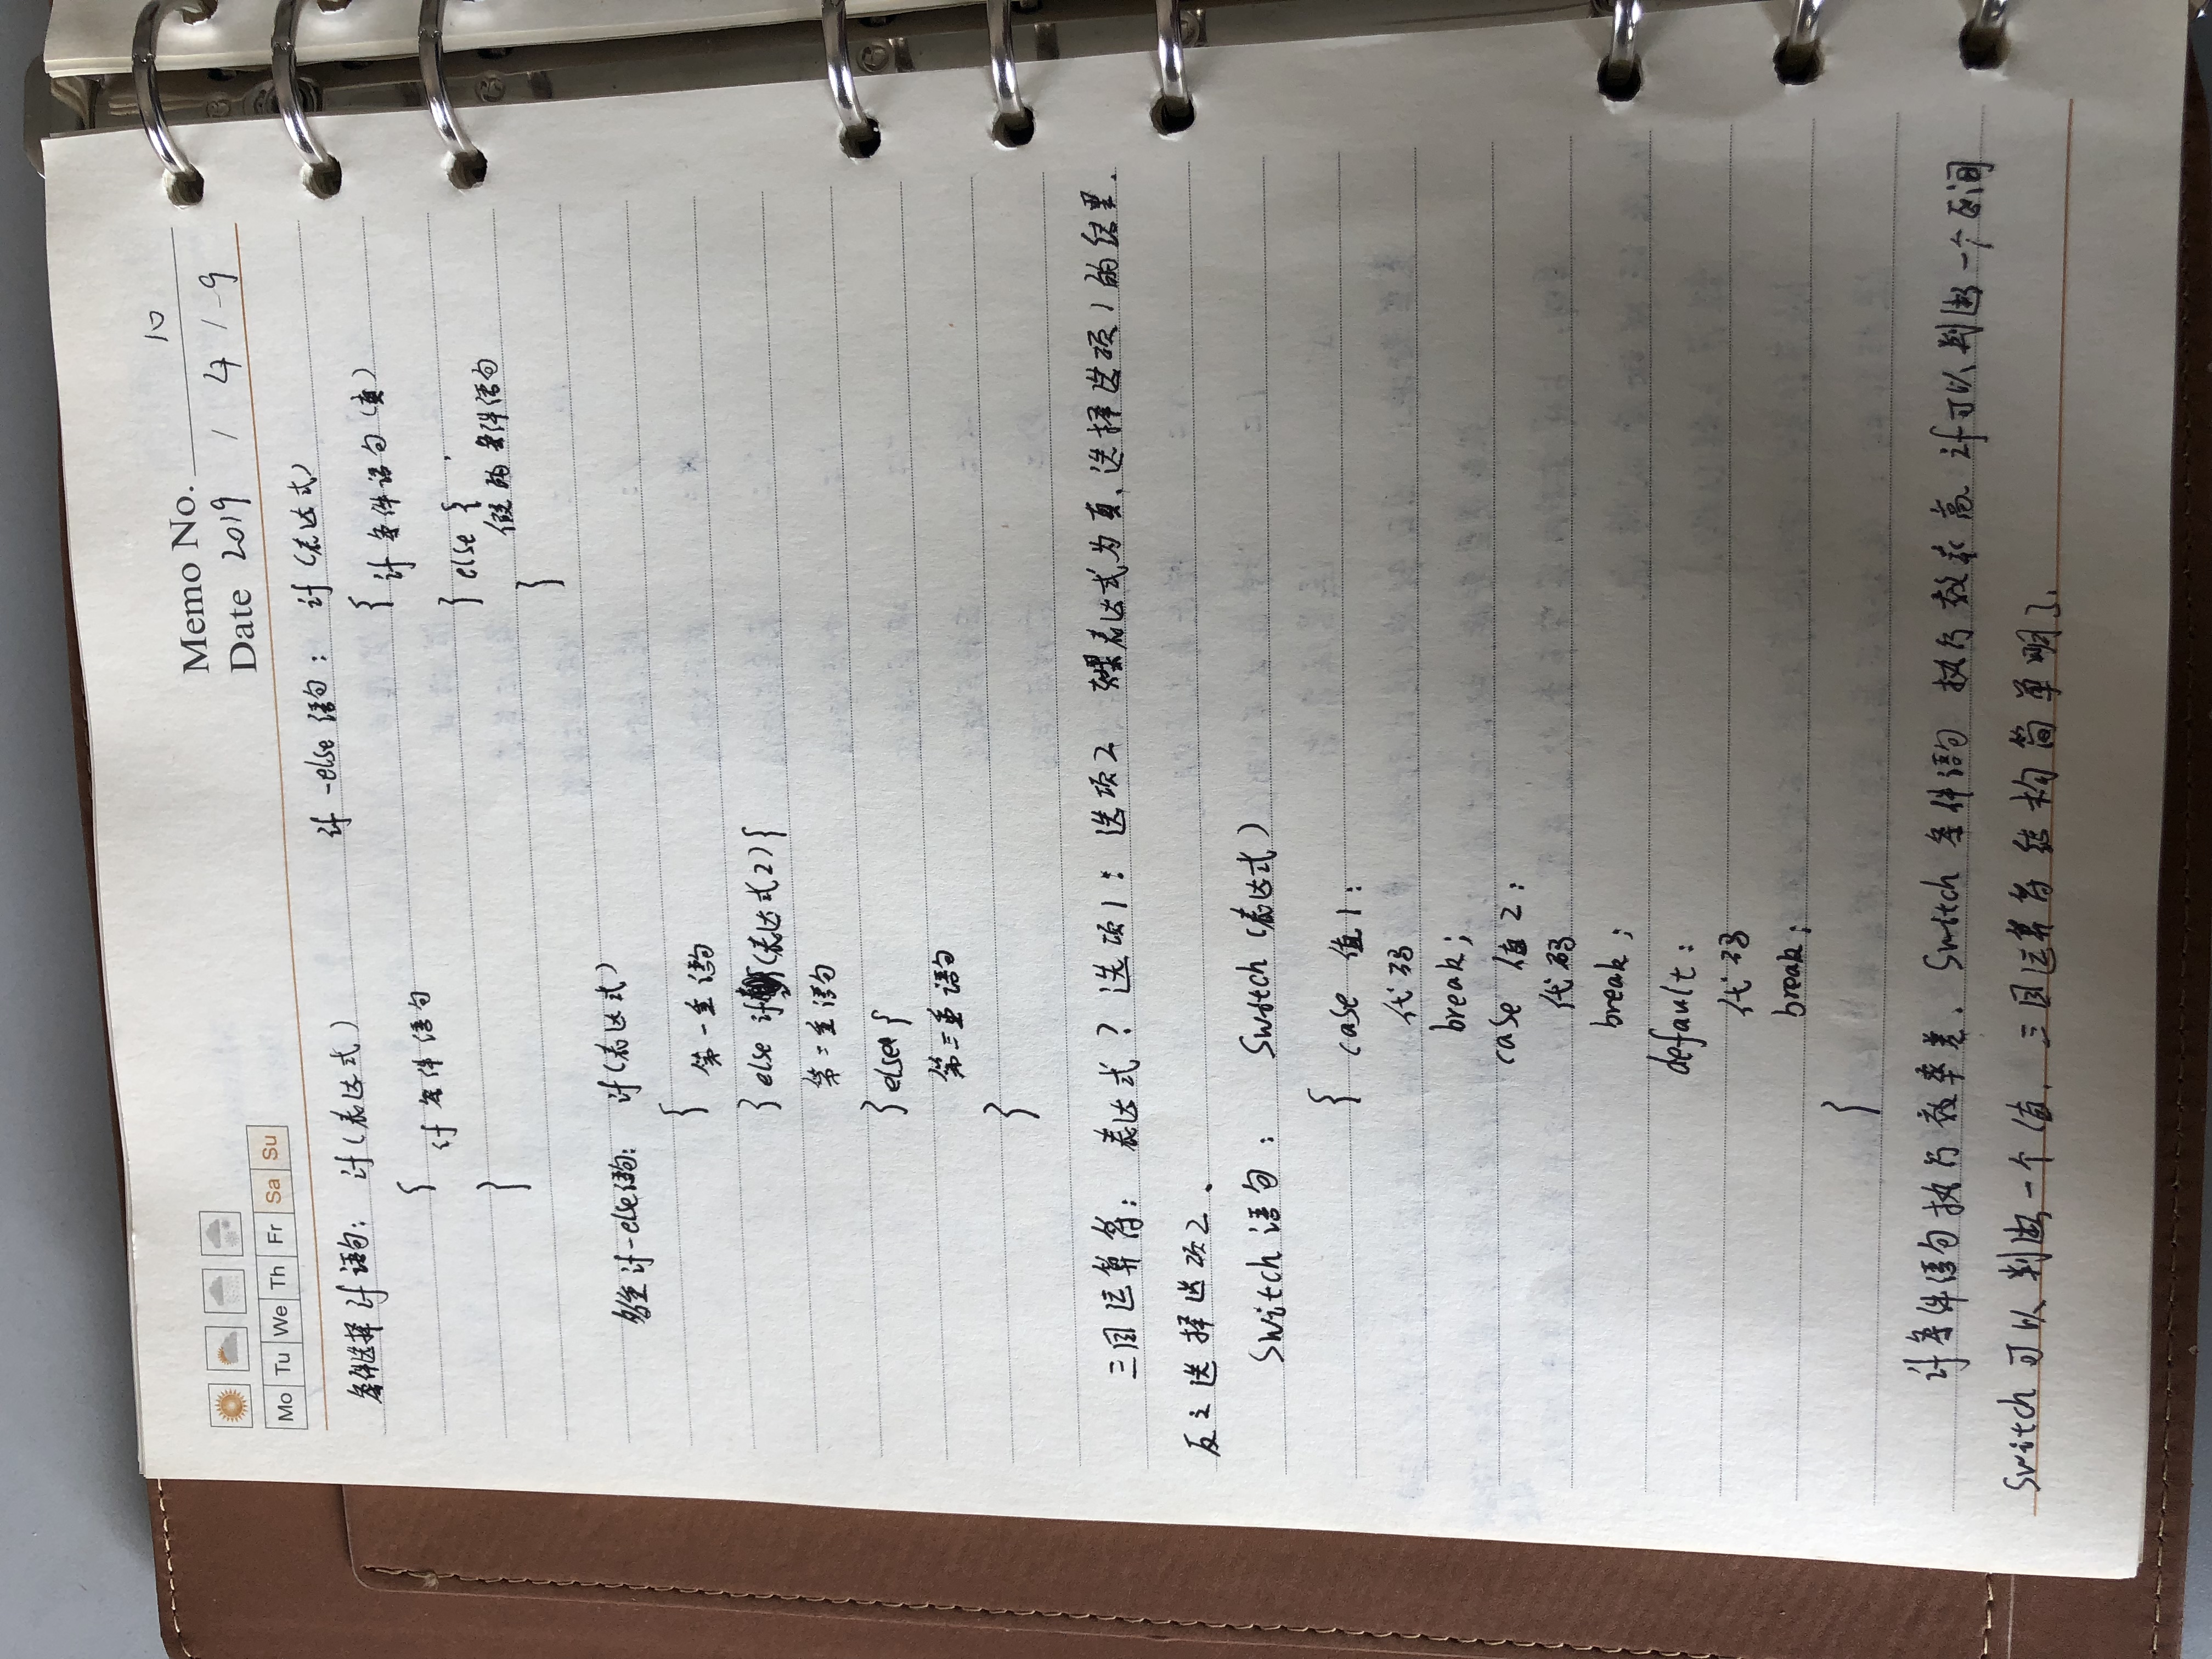 Memo No. 10
Mo Tu We Th Fr Sa Su
Date 2019 / 4 / -9
条件选择if语句: if(表达式) if-else语句: if(表达式)
{ { if条件语句(真)
if条件语句
} } else {
假的条件语句
}
多重if-else语句: if(表达式)
{
第一重语句
} else if(表达式2) {
第二重语句
} else {
第三重语句
}
三目运算符: 表达式? 选项1: 选项2 如果表达式为真,选择选项1的结果.
反之选择选项2.
Switch语句: Switch(表达式)
{ case 值1:
代码
break;
case 值2:
代码
break;
default:
代码
break;
}
if条件语句执行效率差, Switch条件语句执行效率高 if可以判断一个区间
Switch可以判断一个值, 三目运算符结构简单明了.